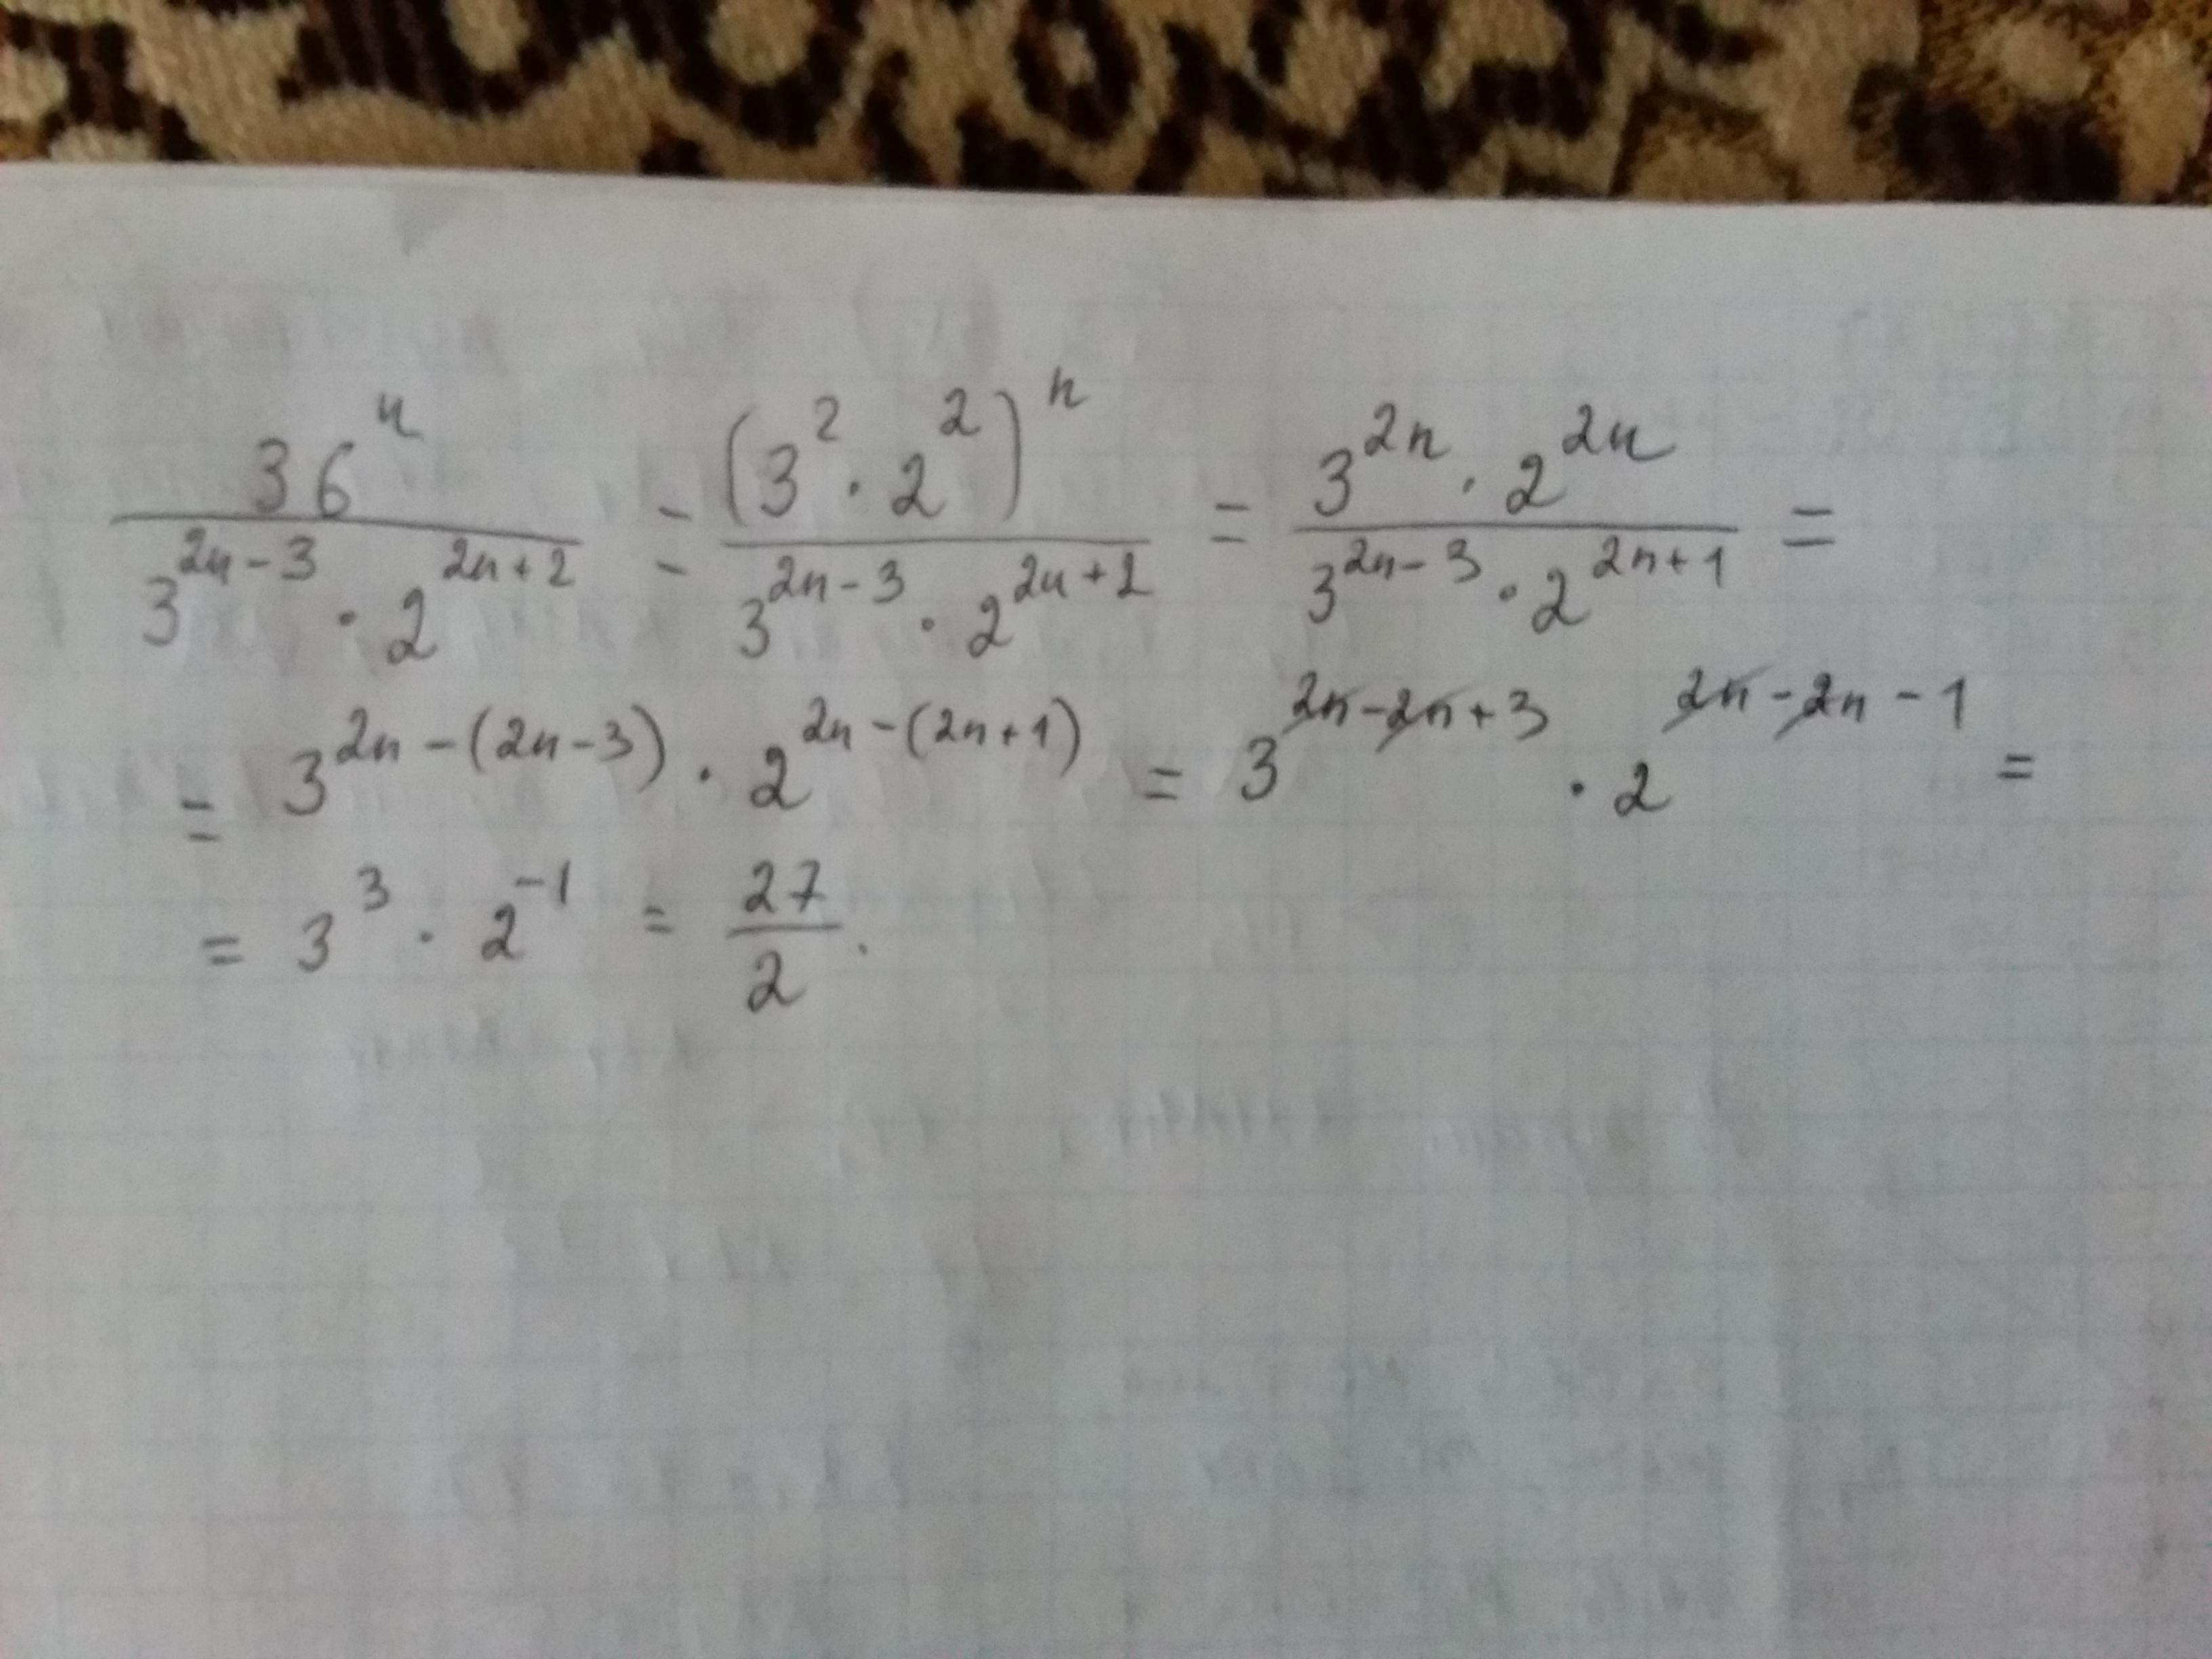 36^n / (3^(2n-3) · 2^(2n+2)) = (3^2 · 2^2)^n / (3^(2n-3) · 2^(2n+2)) = (3^(2n) · 2^(2n)) / (3^(2n-3) · 2^(2n+1)) =
= 3^(2n-(2n-3)) · 2^(2n-(2n+1)) = 3^(2n-2n+3) · 2^(2n-2n-1) =
= 3^3 · 2^(-1) = 27/2.